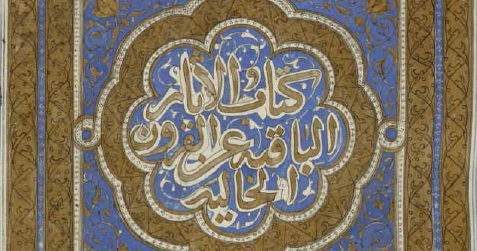 كتاب الاثار
الباقية عن القرون
الخالية